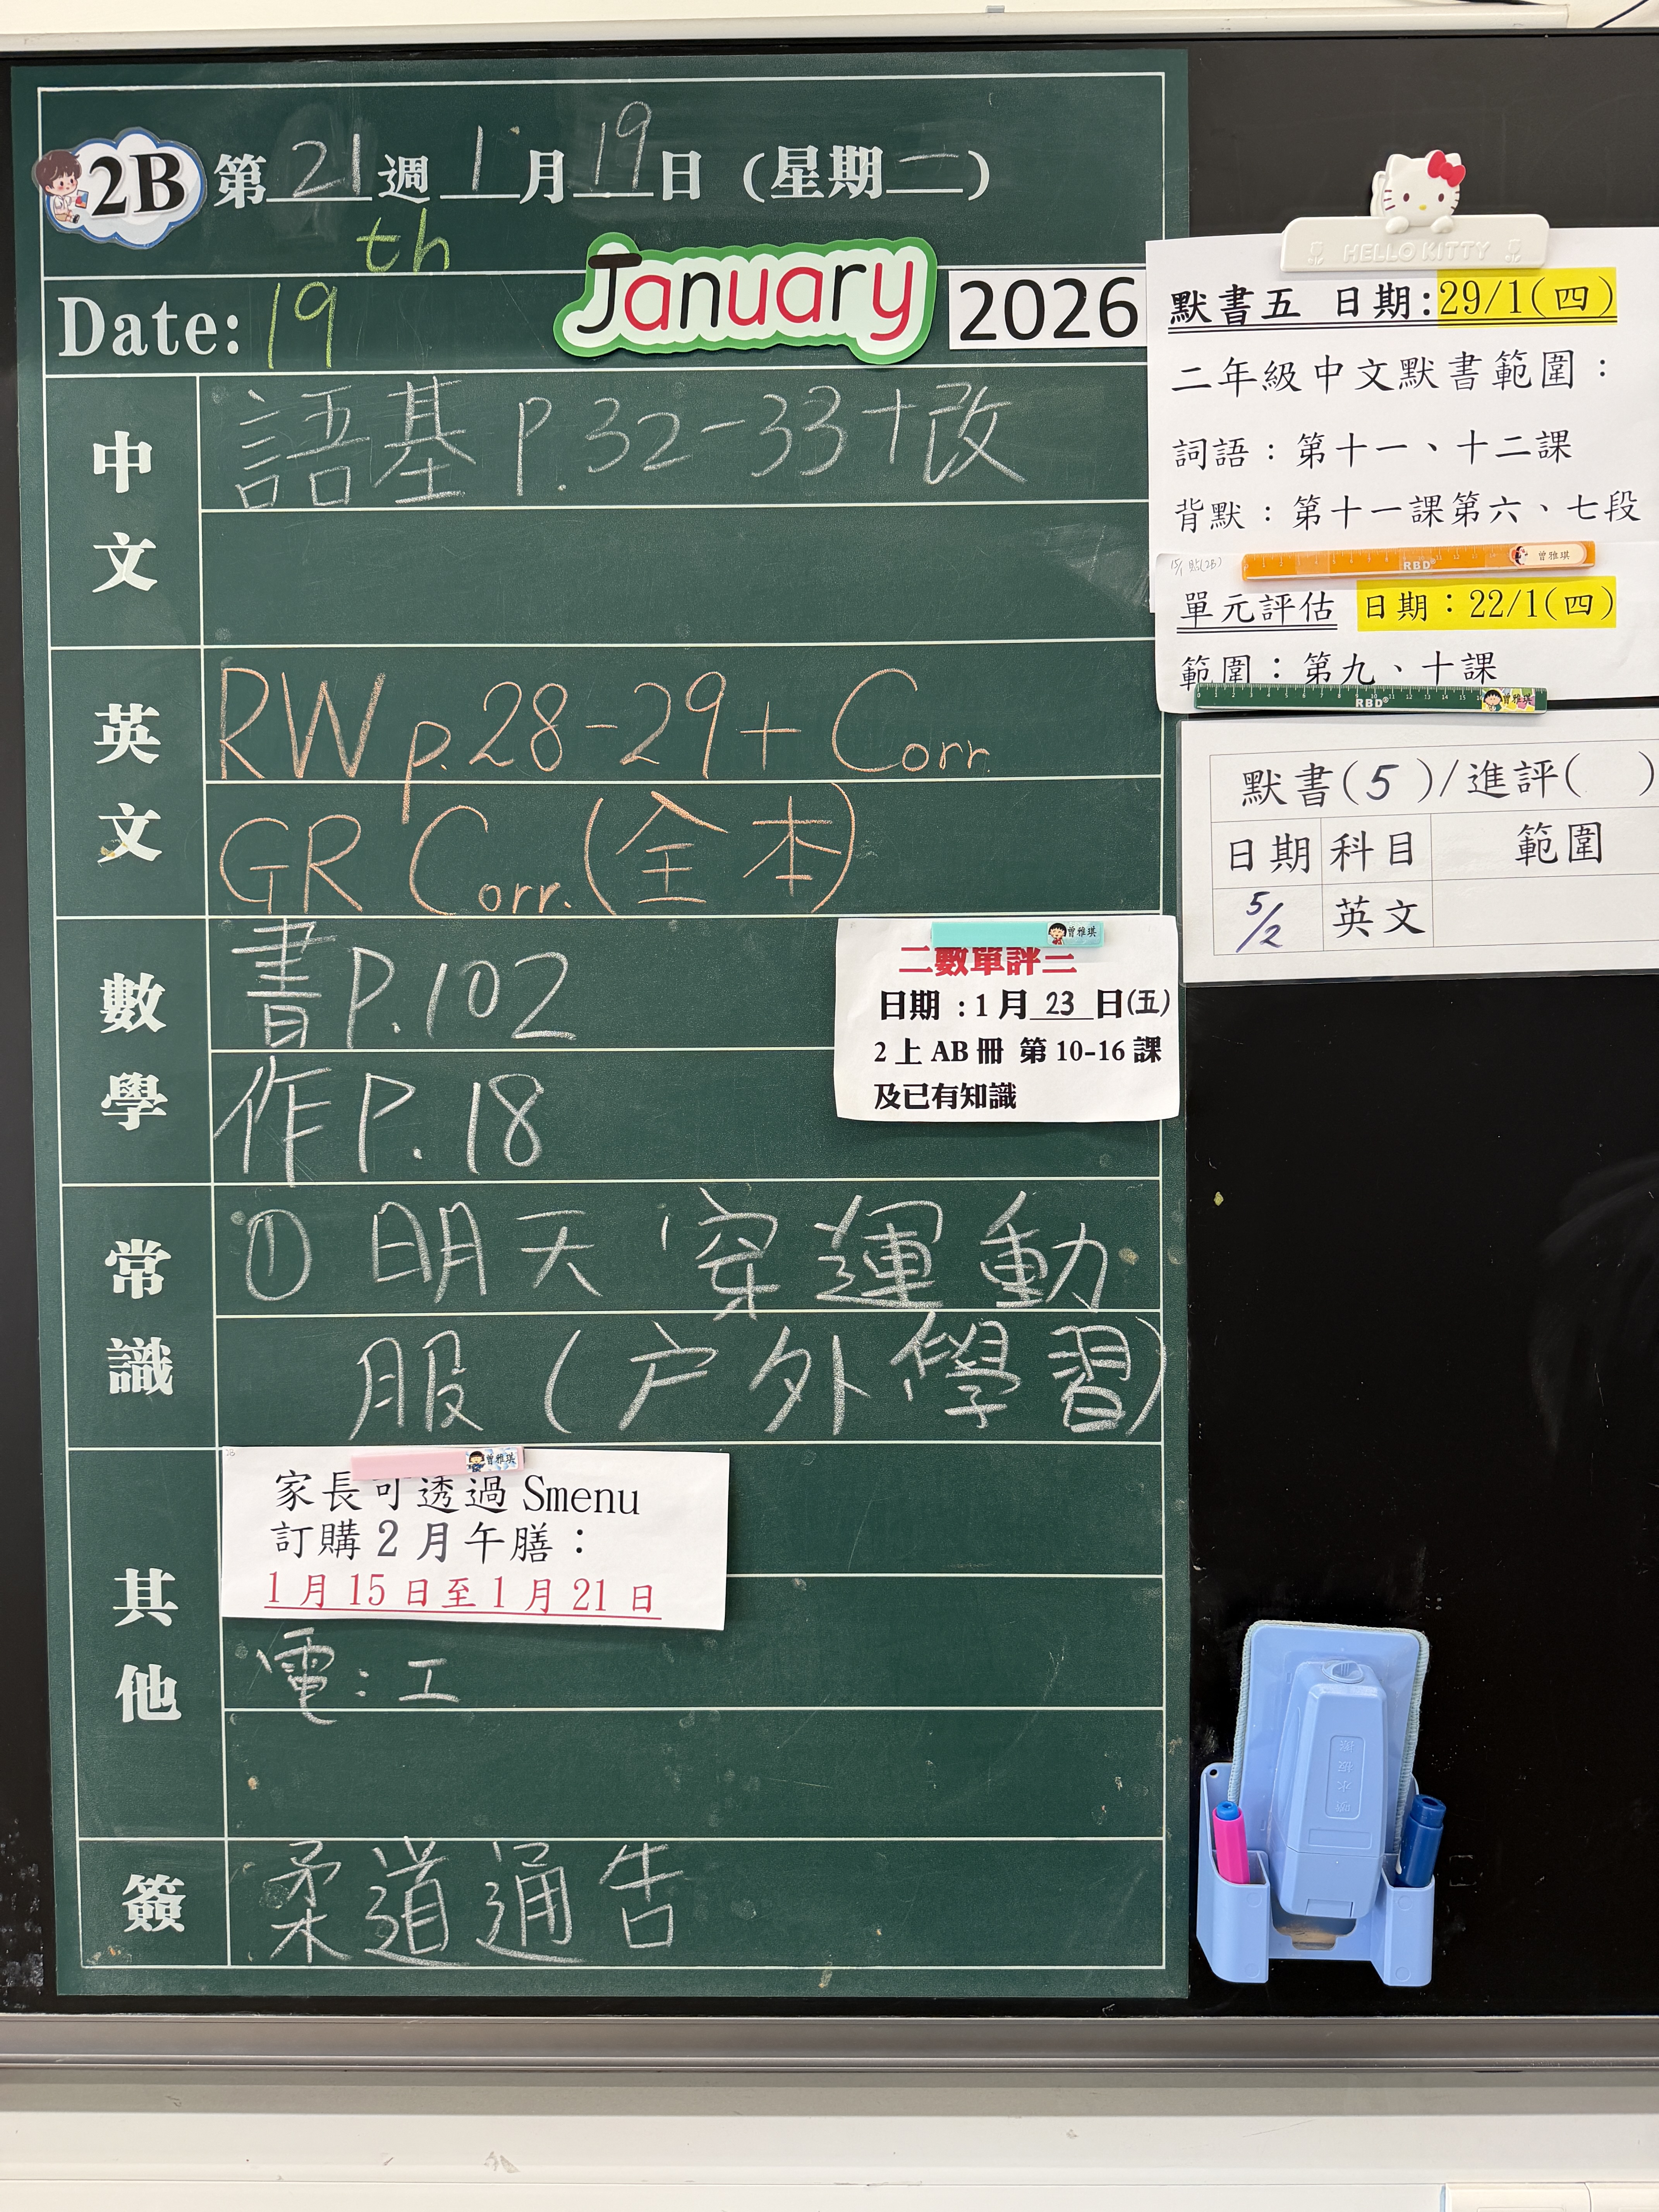 2B 第21週1月19日(星期一)
th
Date: 19 January 2026
中文
語基 P.32-33+改
英文
RW p.28-29 + Corr.
GR Corr.(全本)
數學
書P.102
作P.18
二數單評二
日期:1月23日(五)
2上AB冊 第10-16課
及已有知識
常識
① 明天穿運動
服(户外學習)
其他
家長可透過Smenu
訂購2月午膳:
1月15日至1月21日
電:工
簽
柔道通告
HELLO KITTY
默書五 日期:29/1(四)
二年級中文默書範圍:
詞語:第十一、十二課
背默:第十一課第六、七段
15/1 貼(2B)
RBD 曾雅琪
單元評估 日期:22/1(四)
範圍:第九、十課
RBD 曾雅琪
默書(5)/進評( )
日期 科目 範圍
5/2 英文
曾雅琪
曾雅琪